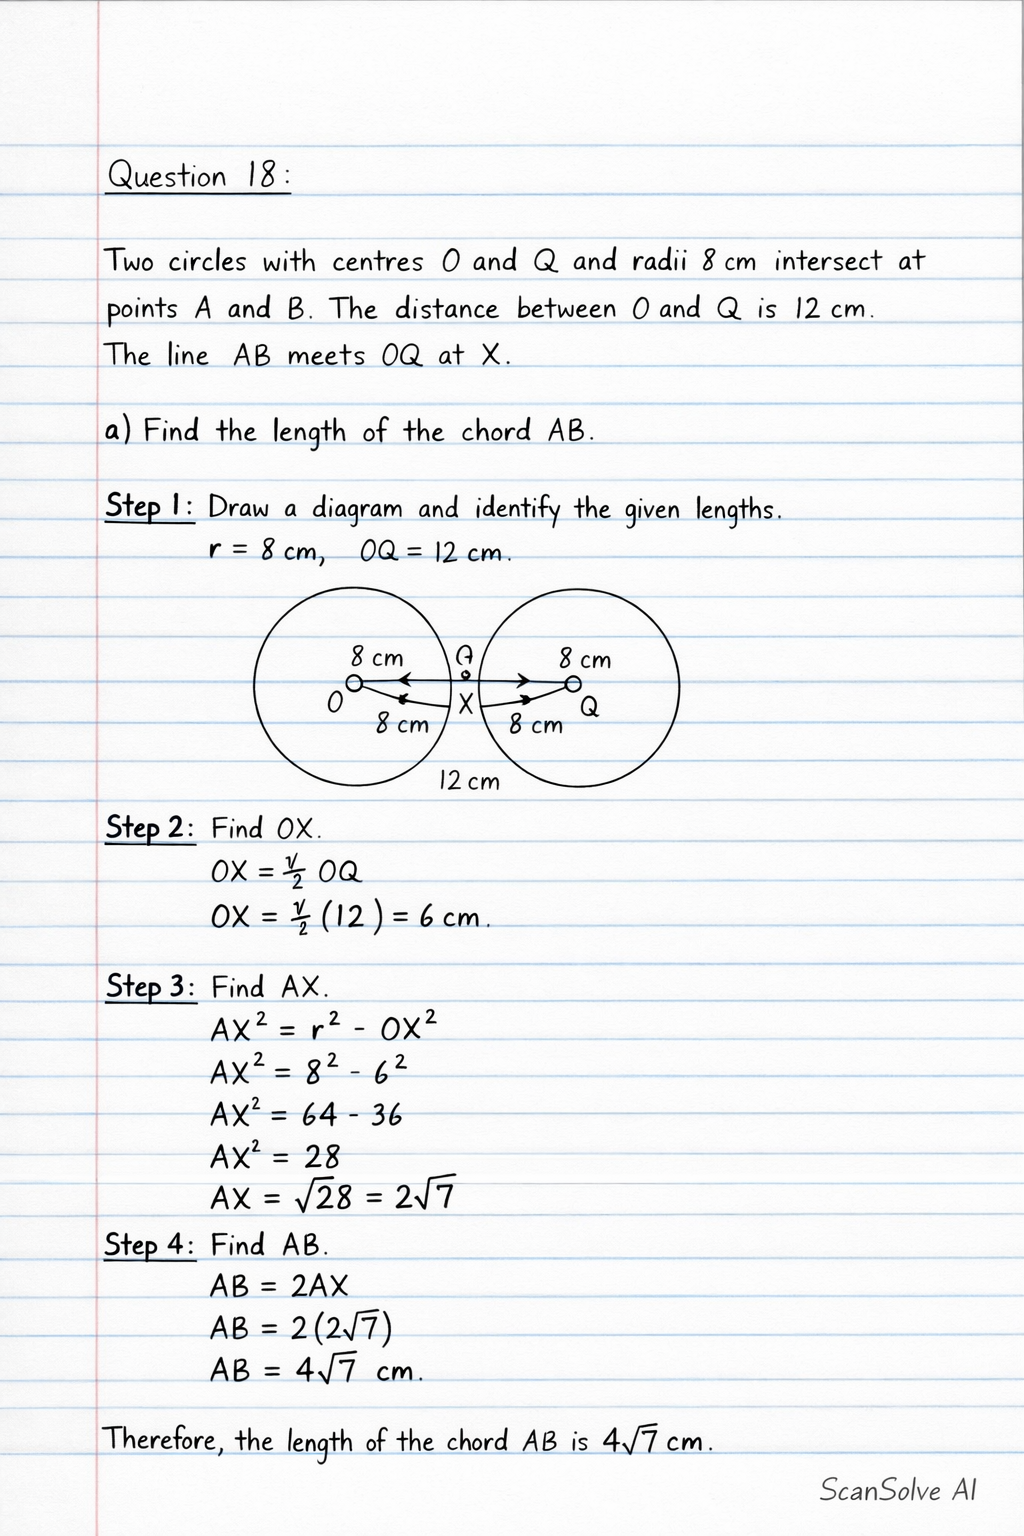 Question 18:
Two circles with centres O and Q and radii 8 cm intersect at
points A and B. The distance between O and Q is 12 cm.
The line AB meets OQ at X.
a) Find the length of the chord AB.
Step 1: Draw a diagram and identify the given lengths.
r = 8 cm, OQ = 12 cm.
8 cm A 8 cm
O X Q
8 cm 8 cm
12 cm
Step 2: Find OX.
OX = 1/2 OQ
OX = 1/2 (12) = 6 cm.
Step 3: Find AX.
AX² = r² - OX²
AX² = 8² - 6²
AX² = 64 - 36
AX² = 28
AX = √28 = 2√7
Step 4: Find AB.
AB = 2AX
AB = 2(2√7)
AB = 4√7 cm.
Therefore, the length of the chord AB is 4√7 cm.
ScanSolve AI